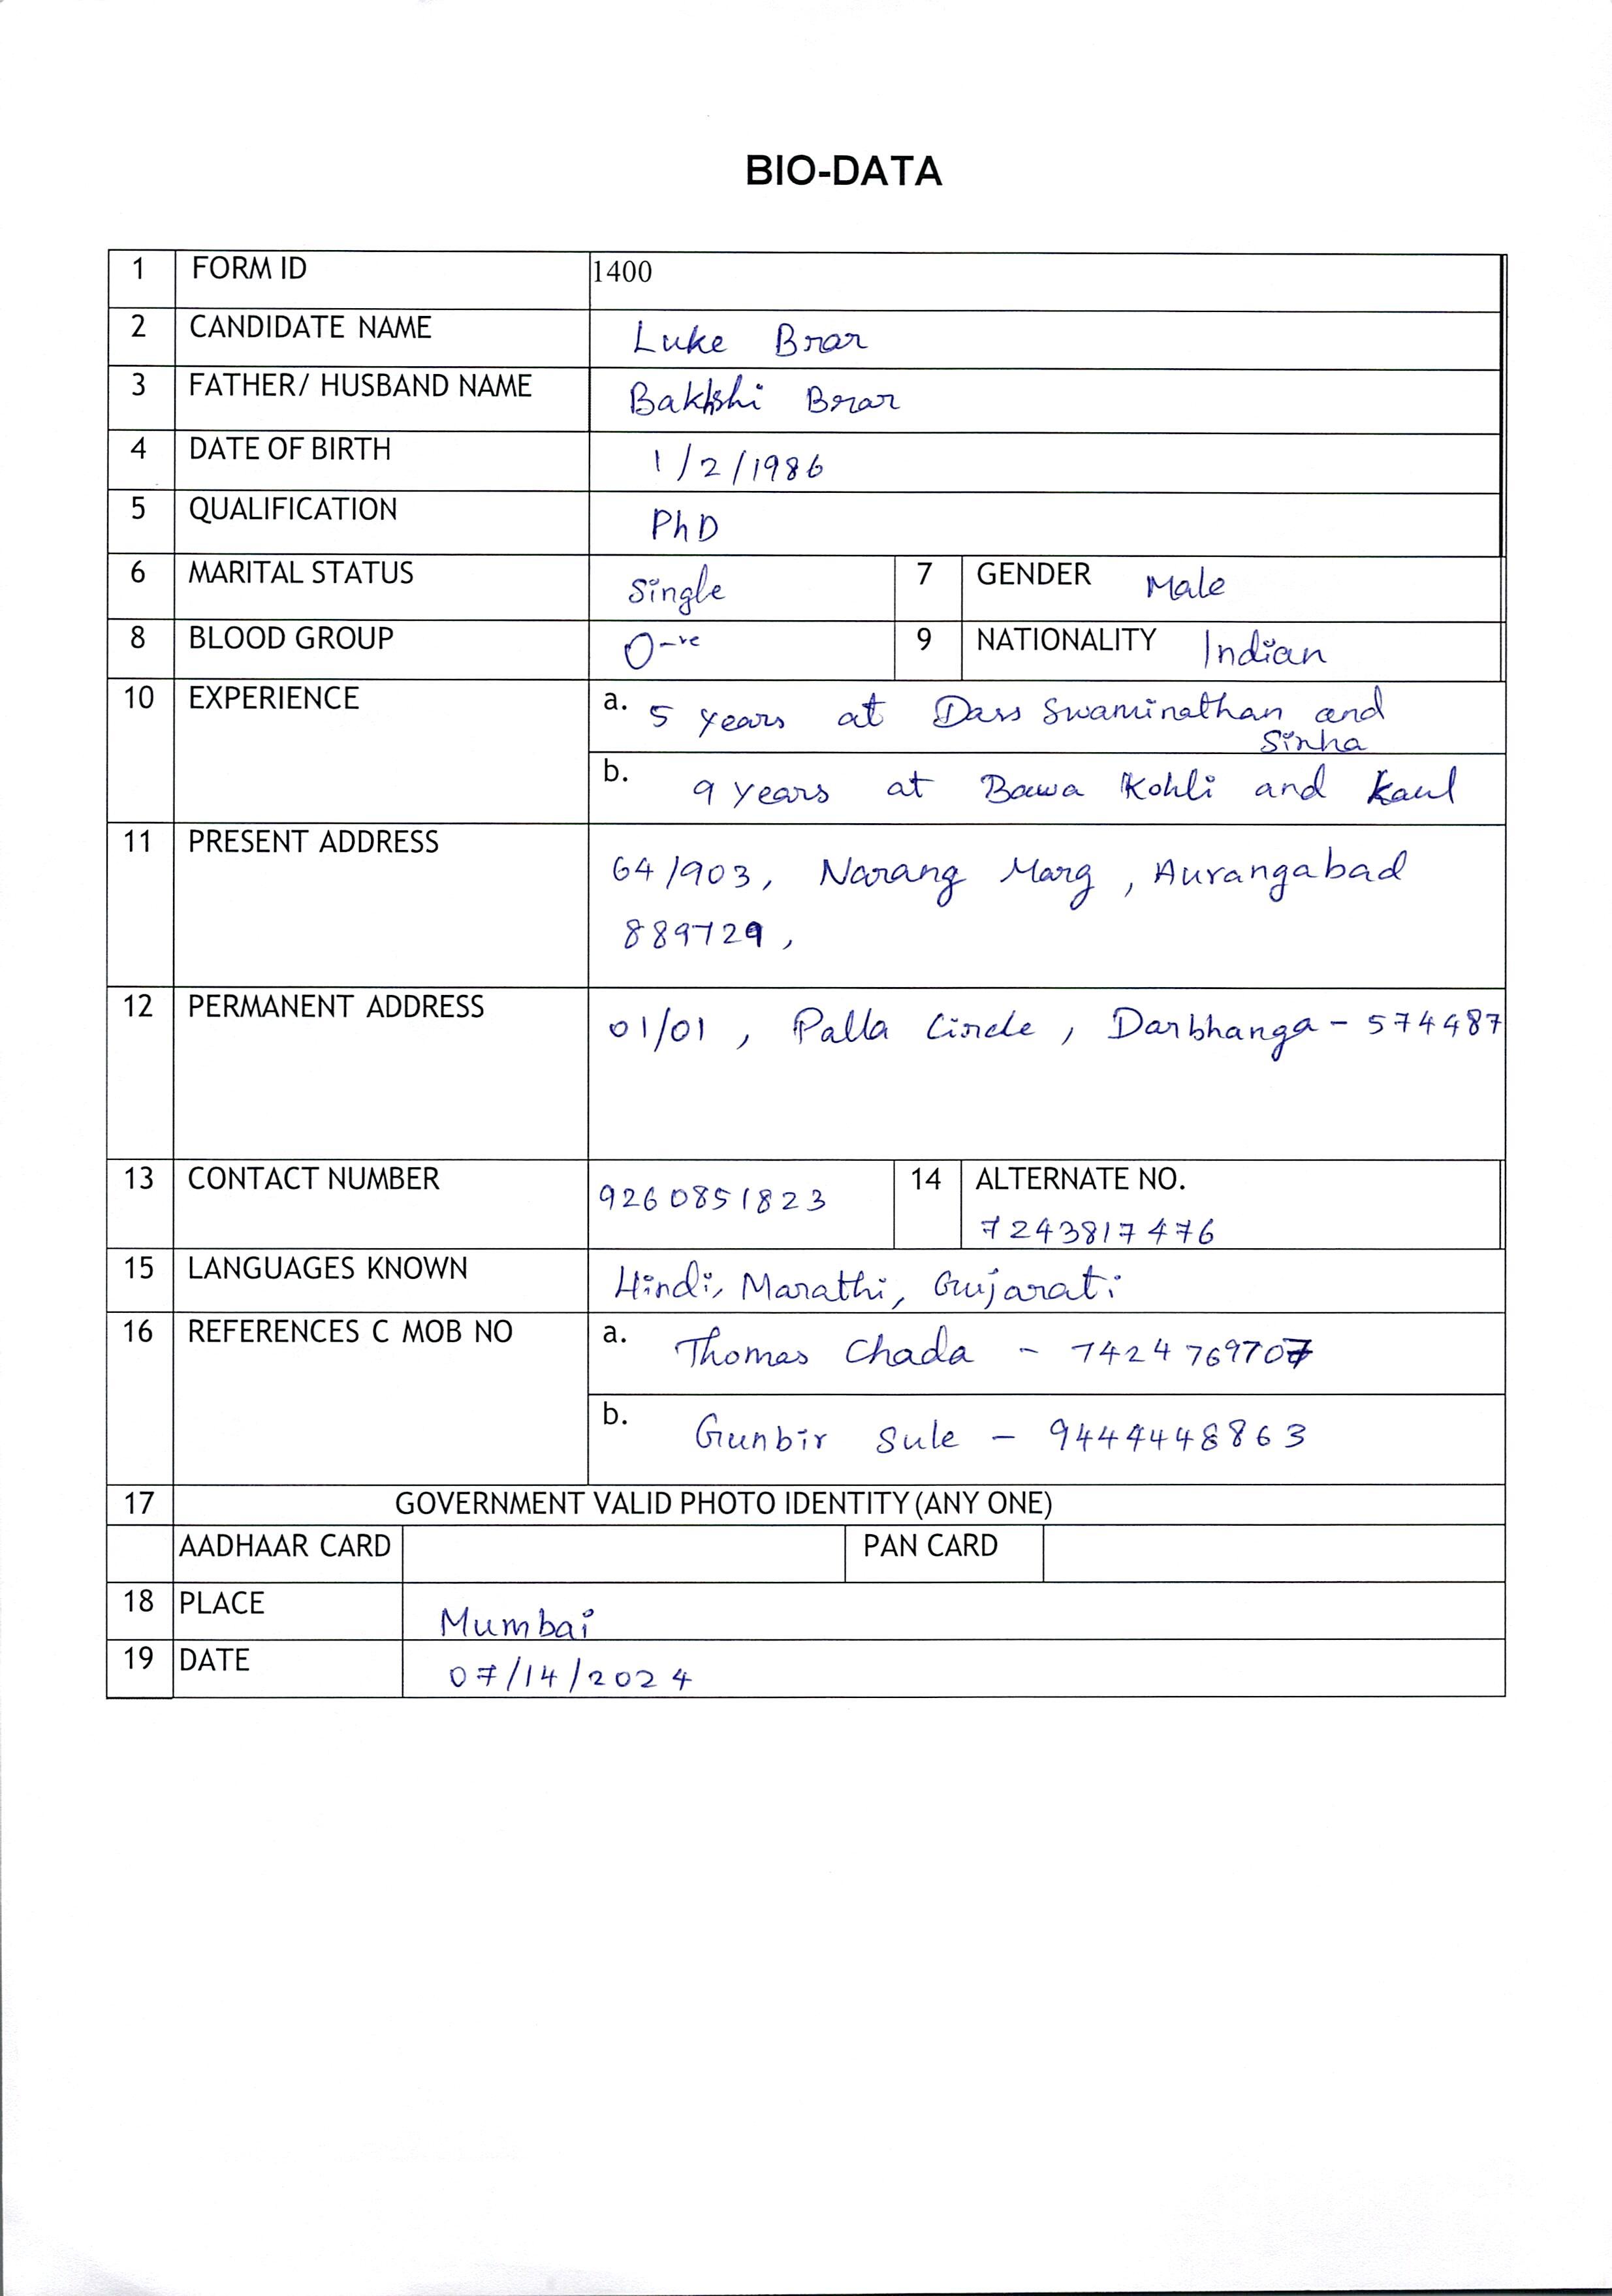 BIO-DATA
1 FORM ID 1400
2 CANDIDATE NAME Luke Brar
3 FATHER/ HUSBAND NAME Bakhshi Brar
4 DATE OF BIRTH 1/2/1986
5 QUALIFICATION PhD
6 MARITAL STATUS Single 7 GENDER Male
8 BLOOD GROUP O-ve 9 NATIONALITY Indian
10 EXPERIENCE a. 5 years at Dass Swaminathan and
Sinha
b. 9 years at Bawa Kohli and Kaul
11 PRESENT ADDRESS 64/903, Narang Marg, Aurangabad
889729,
12 PERMANENT ADDRESS 01/01, Palla Circle, Darbhanga - 574487
13 CONTACT NUMBER 9260851823 14 ALTERNATE NO.
7243817476
15 LANGUAGES KNOWN Hindi, Marathi, Gujarati
16 REFERENCES C MOB NO a. Thomas Chada - 7424769707
b. Gunbir Sule - 9444448863
17 GOVERNMENT VALID PHOTO IDENTITY (ANY ONE)
AADHAAR CARD PAN CARD
18 PLACE Mumbai
19 DATE 07/14/2024